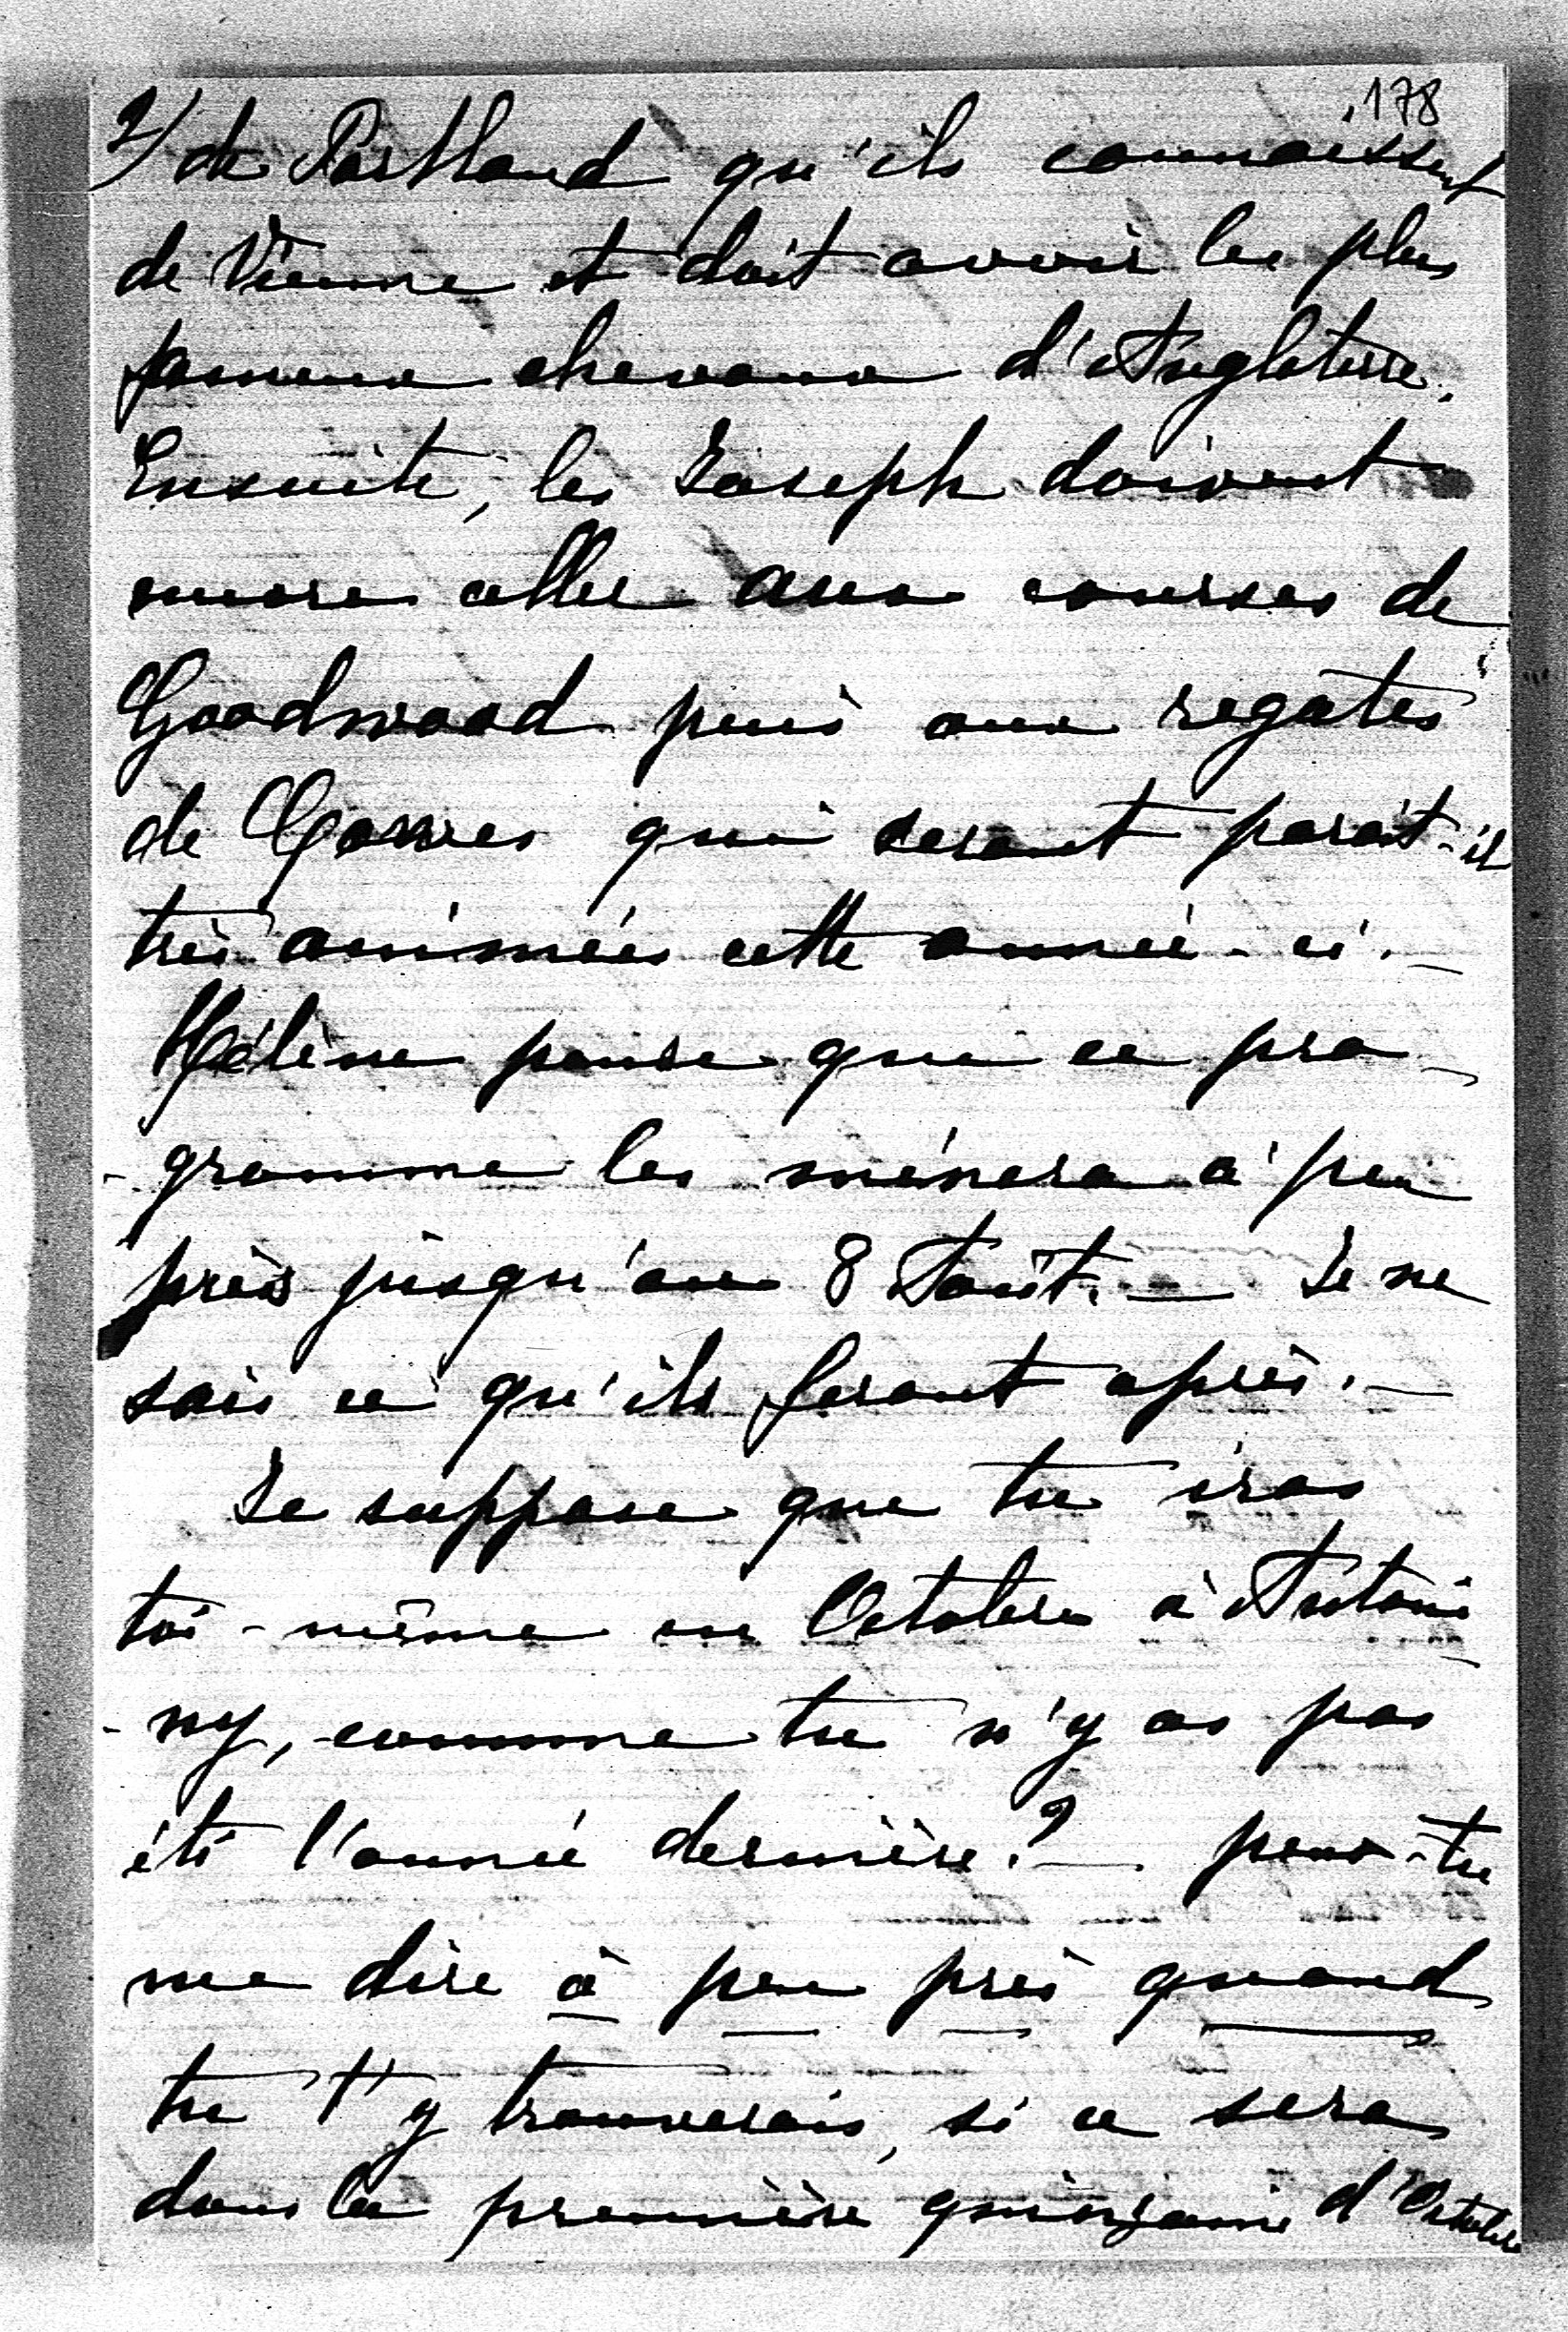 178
2/ de Portland qu'ils connaissent
de Vienne et doit avoir les plus
fameux chevaux d'Angleterre.
Ensuite, les Joseph doivent
encore aller aux courses de
Goodwood puis aux regates
de Cowes qui seront parait-il
très animées cette année-ci. —
Hélène pense que ce pro-
-gramme les mènera à peu
près jusqu'au 8 Août. — Je ne
sais ce qu'ils feront après. —
Je suppose que tu iras
toi-même en Octobre à Antoni-
-ny, comme tu n'y as pas
été l'année dernière? — peux-tu
me dire à peu près quand
tu t'y trouverais, si ce sera
dans la première quinzaine d'Octobre